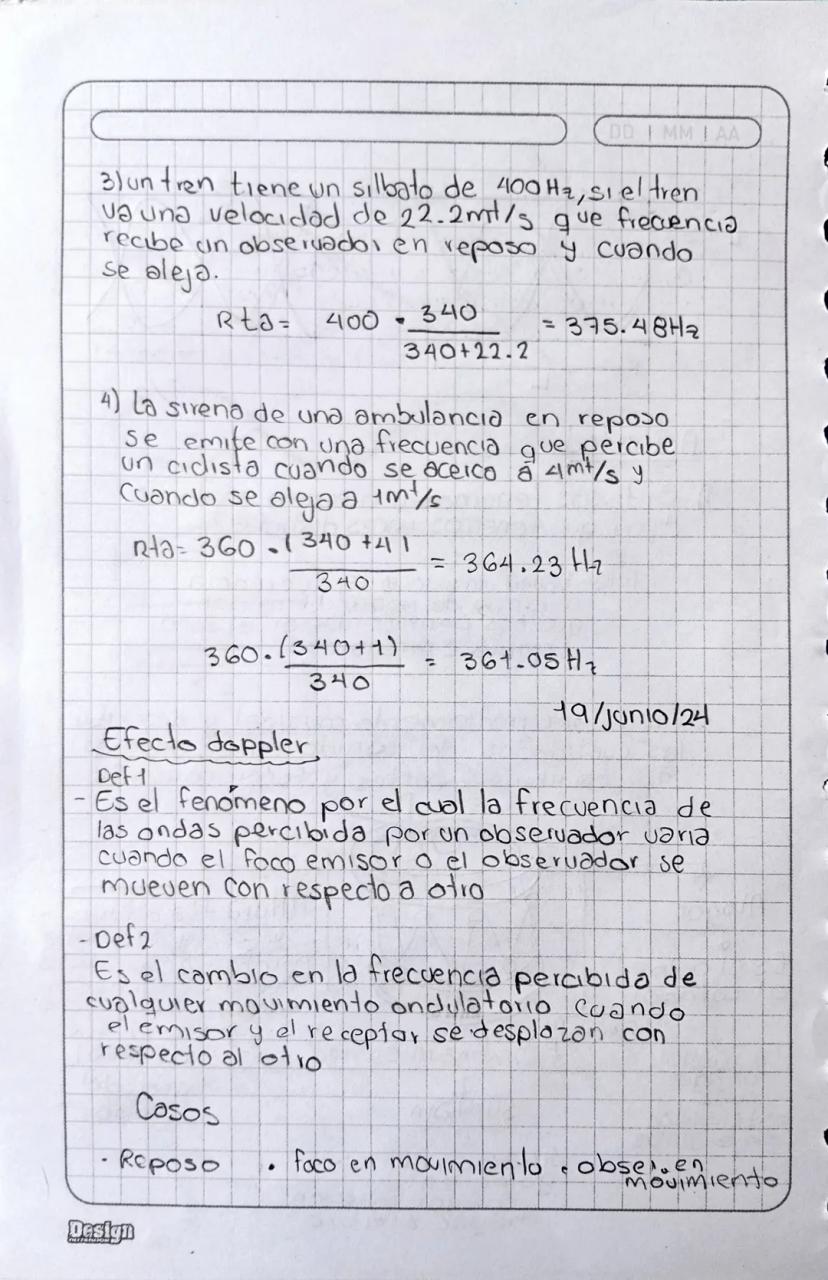 DD | MM | AA
3) un tren tiene un silbato de 400Hz, si el tren
va una velocidad de 22.2mt/s que frecuencia
recibe un observador en reposo y cuando
se aleja.
Rta= 400 • 340 / 340+22.2 = 375.48Hz
4) La sirena de una ambulancia en reposo
se emite con una frecuencia que percibe
un ciclista cuando se acerco a 4mt/s y
Cuando se aleja a 1mt/s
Rta= 360 • (340 +4) / 340 = 364.23 Hz
360 • (340+1) / 340 = 361.05 Hz
19/junio/24
Efecto doppler
Def 1
- Es el fenómeno por el cual la frecuencia de
las ondas percibida por un observador varia
cuando el foco emisor o el observador se
mueven con respecto a otro
- Def 2
Es el cambio en la frecuencia percibida de
cualquier movimiento ondulatorio cuando
el emisor y el receptor se desplazan con
respecto al otro
Casos
• Reposo • foco en movimiento • obser. en
movimiento
Design